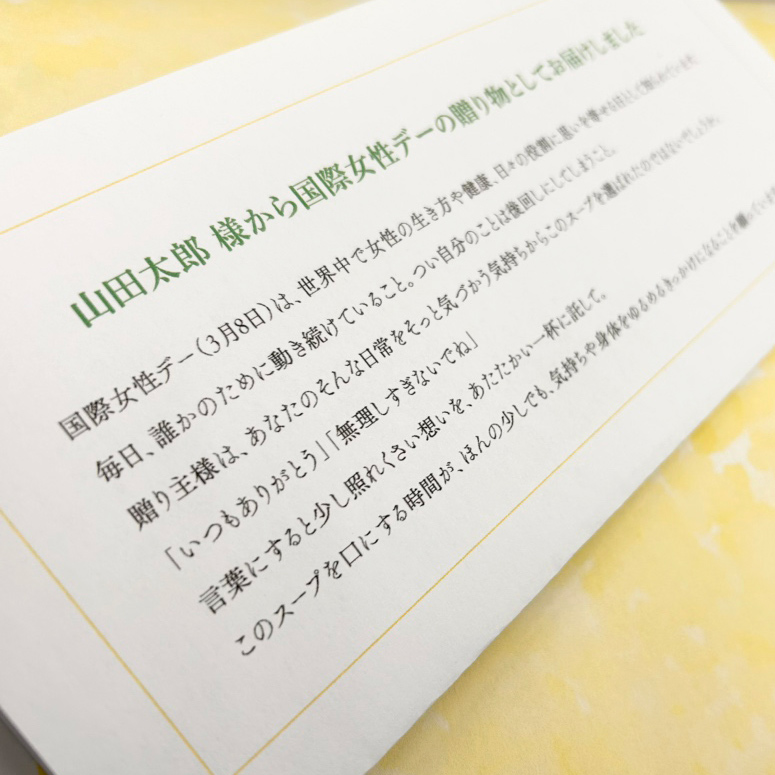 山田太郎 様から国際女性デーの贈り物としてお届けしました
国際女性デー（3月8日）は、世界中で女性の生き方や健康、日々の役割に思いを寄せる日として知られています。
毎日、誰かのために動き続けていること。つい自分のことは後回しにしてしまうこと。
贈り主様は、あなたのそんな日常をそっと気づかう気持ちからこのスープを選ばれたのではないでしょうか。
「いつもありがとう」「無理しすぎないでね」
言葉にすると少し照れくさい想いを、あたたかい一杯に託して。
このスープを口にする時間が、ほんの少しでも、気持ちや身体をゆるめるきっかけになることを願っています